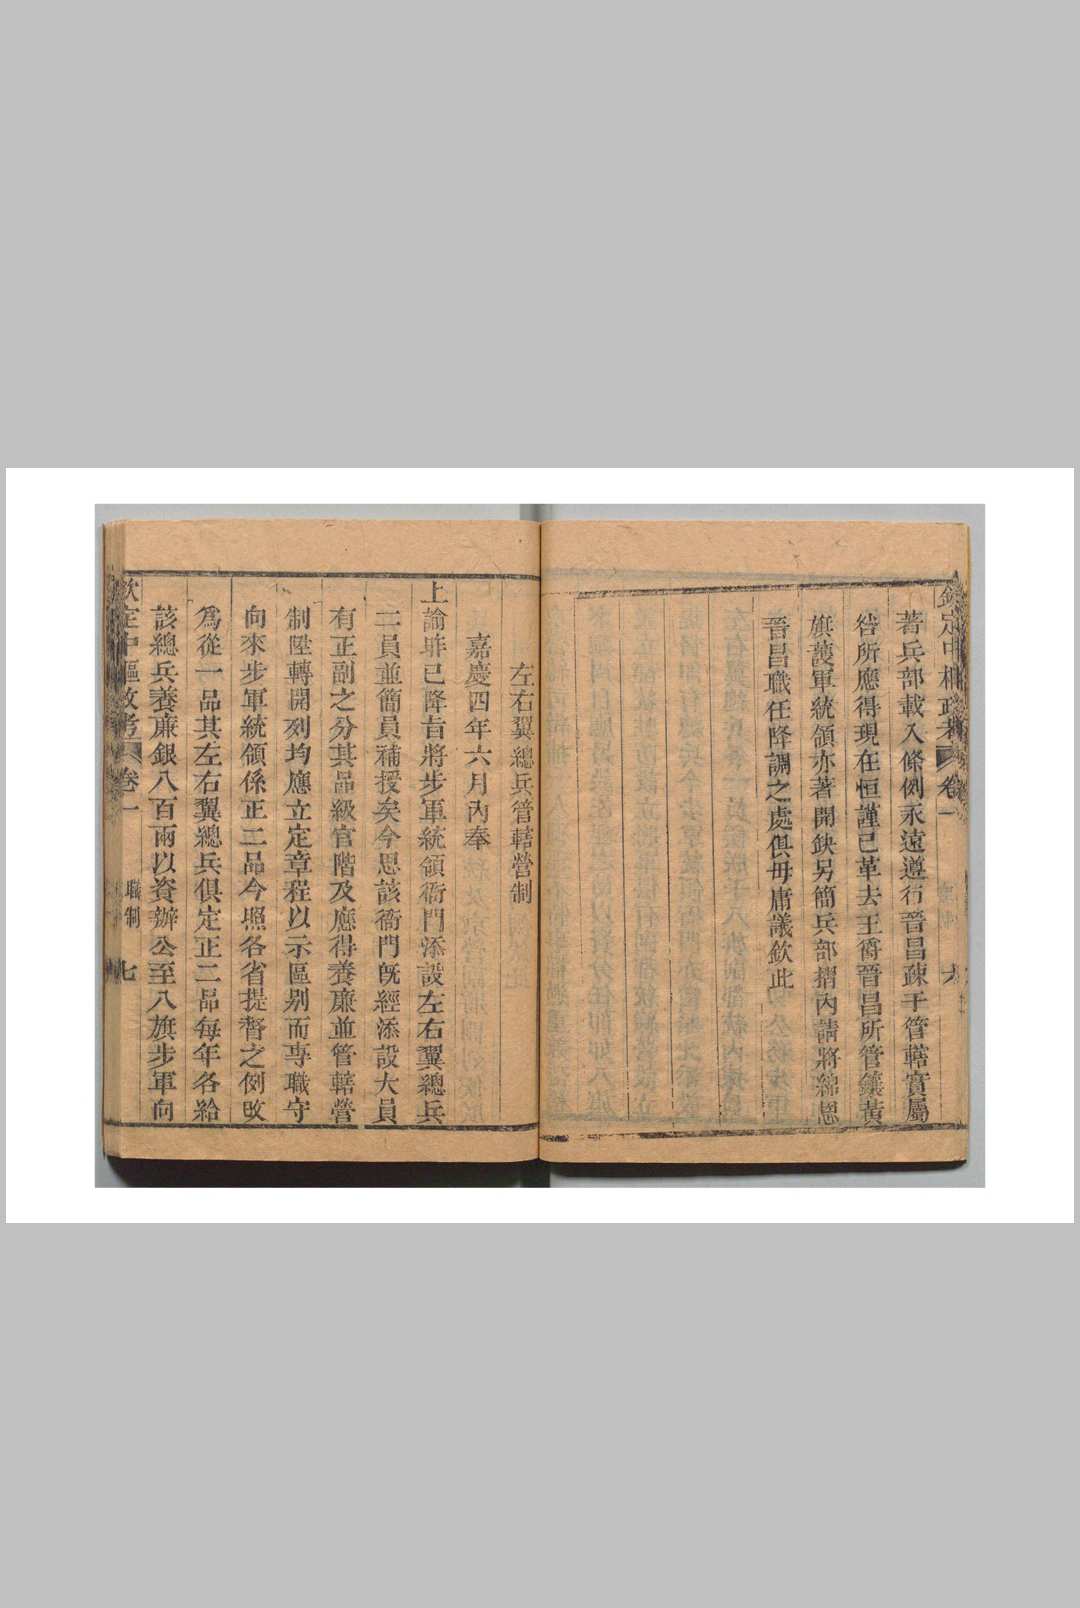 欽定中樞政考 卷一 六
著兵部載入條例永遠遵行晉昌疎于管轄實屬
咎所應得現在恒謹已革去王爵晉昌所管鑲黃
旗護軍統領亦著開缺另簡兵部摺內請將綿恩
晉昌職任降調之處俱毋庸議欽此
左右翼總兵管轄營制
嘉慶四年六月內奉
上諭昨已降旨將步軍統領衙門添設左右翼總兵
二員並簡員補授矣今思該衙門旣經添設大員
有正副之分其品級官階及應得養廉並管轄營
制陞轉開列均應立定章程以示區別而專職守
向來步軍統領係正二品今照各省提督之例改
爲從一品其左右翼總兵俱定正二品每年各給
該總兵養廉銀八百兩以資辦公至八旗步軍向
欽定中樞政考 卷一 職制 七